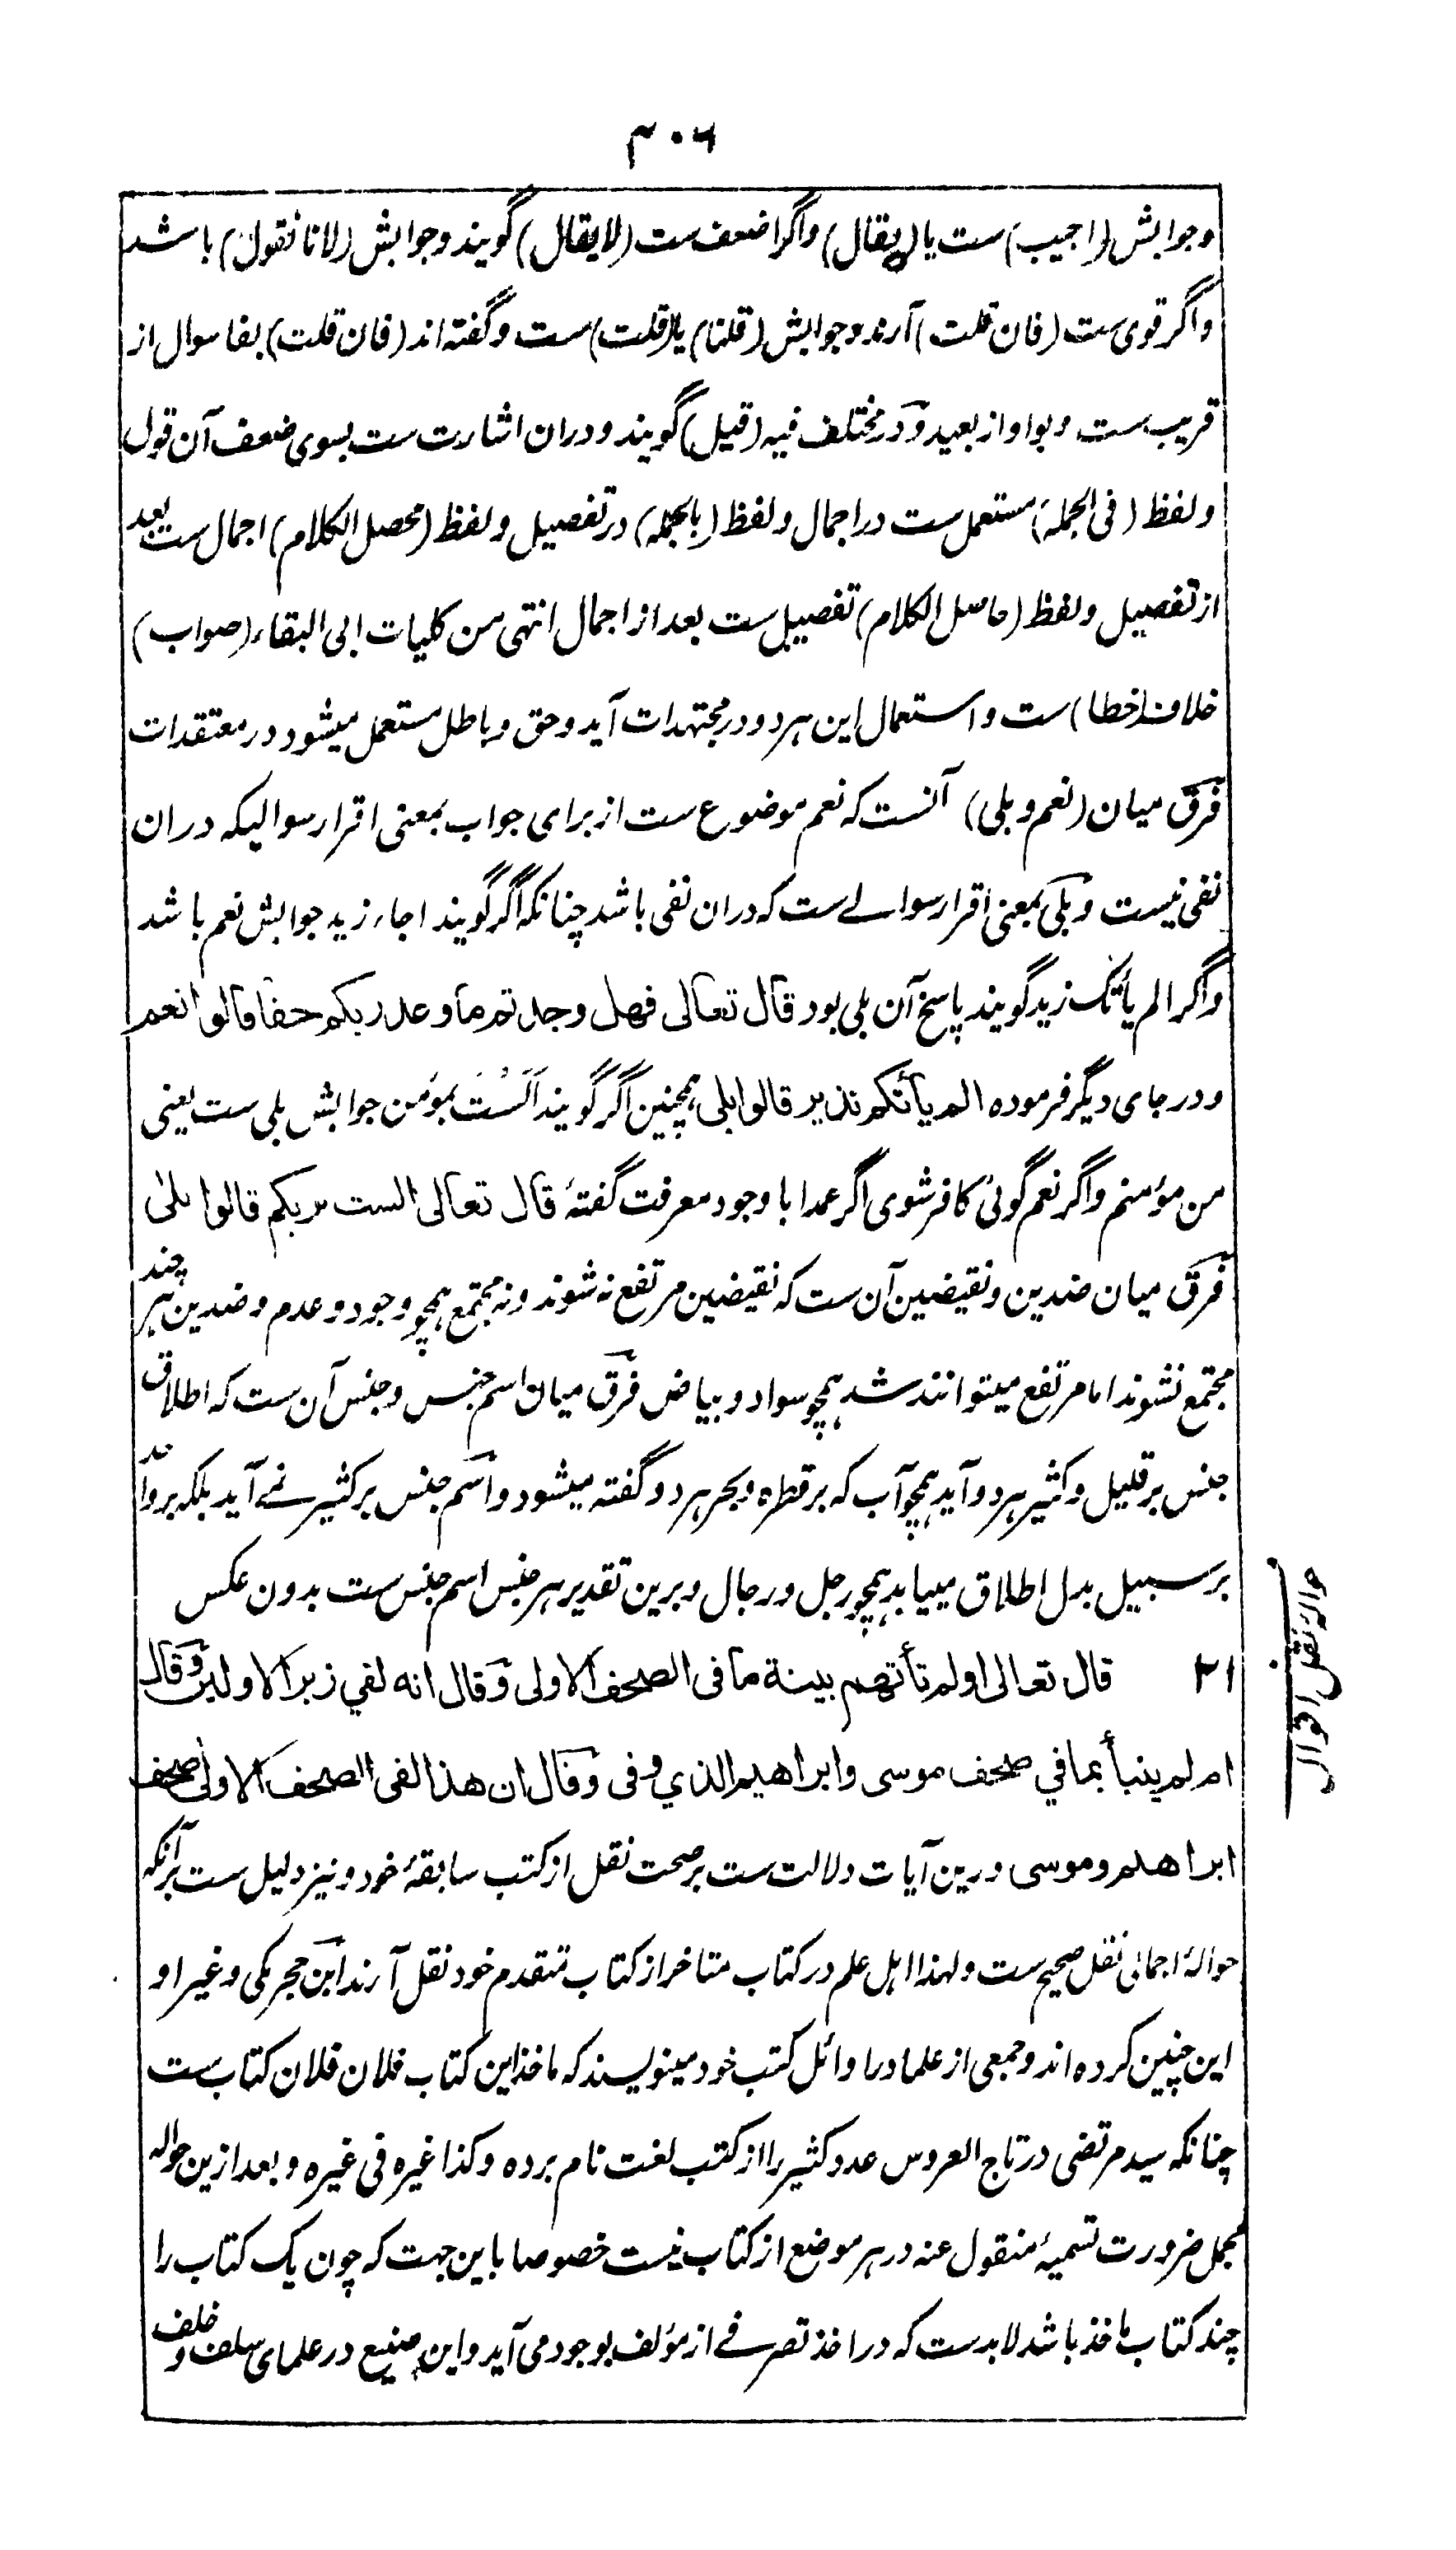 ۳۰۶
وجوابش (اجیب) ست یا (یقال) واگر اضعف ست (لایقال) گویند وجوابش (لانا نقول) باشد
واگر قوی ست (فان قلت) آرند وجوابش (قلنا) یا (قلت) ست وگفته اند (فان قلت) بفا سوال از
قریب ست و بواو از بعید و در مختلف فیه (قیل) گویند ودران اشارت ست بسوی ضعف آن قول
ولفظ (فی الجملة) مستعمل ست در اجمال ولفظ (بالجملة) در تفصیل ولفظ (محصل الکلام) اجمال ست بعد
از تفصیل ولفظ (حاصل الکلام) تفصیل ست بعد از اجمال انتهی من کلیات ابی البقاء (صواب)
خلاف (خطا) ست واستعمال این هردو در مجتهدات آید وحق وباطل مستعمل میشود در معتقدات
فرق میان (نعم وبلی) آنست که نعم موضوع ست از برای جواب بمعنی اقرار سوالیکه دران
نفی نیست وبلی بمعنی اقرار سوالے ست که دران نفی باشد چنانکه اگر گویند اجاء زید جوابش نعم باشد
واگر الم یأتک زید گویند پاسخ آن بلی بود قال تعالی فهل وجدتم ما وعد ربکم حقا قالوا نعم
ودر جای دیگر فرموده الم یأتکم نذیر قالوا بلی همچنین اگر گویند اَلَسْتَ بمؤمن جوابش بلی ست یعنی
من مؤمنم واگر نعم گوئی کافر شوی اگر عمدا با وجود معرفت گفتۂ قال تعالی الست بربکم قالوا بلی
فرق میان ضدین ونقیضین آن ست که نقیضین مرتفع نه شوند ونه مجتمع همچو وجود وعدم وضدین هر چند
مجتمع نشوند اما مرتفع میتوانند شد همچو سواد وبیاض فرق میان اسم جنس وجنس آن ست که اطلاق
جنس بر قلیل وکثیر هردو آید همچو آب که بر قطره وبحر هردو گفته میشود واسم جنس بر کثیر نمے آید بلکه بر واحد
بر سبیل بدل اطلاق مییابد همچو رجل ورجال وبرین تقدیر هر جنس اسم جنس ست بدون عکس
۲۱ قال تعالی اولم تأتهم بینة ما فی الصحف الاولی وقال انه لفی زبر الاولین وقال
ام لم ینبأ بما فی صحف موسی وابراهیم الذی وفی وقال ان هذا لفی الصحف الاولی صحف
ابراهیم وموسی درین آیات دلالت ست بر صحت نقل از کتب سابقۂ خود ونیز دلیل ست برآنکه
حوالۂ اجمالی نقل صحیح ست ولهذا اهل علم در کتاب متاخر از کتاب متقدم خود نقل آرند ابن حجر مکی وغیر او
این چنین کرده اند وجمعی از علما در اوائل کتب خود مینویسند که ماخذ این کتاب فلان فلان کتاب ست
چنانکه سید مرتضی در تاج العروس عدد کثیر را از کتب لغت نام برده وکذا غیره فی غیره وبعد ازین حواله
مجمل ضرورت تسمیۂ منقول عنه در هر موضع از کتاب نیست خصوصا باین جهت که چون یک کتاب را
چند کتاب ماخذ باشد لابدست که در اخذ تصرفے از مؤلف بوجود می آید واین صنیع در علمای سلف وخلف
حوالۂ نقل اقوال